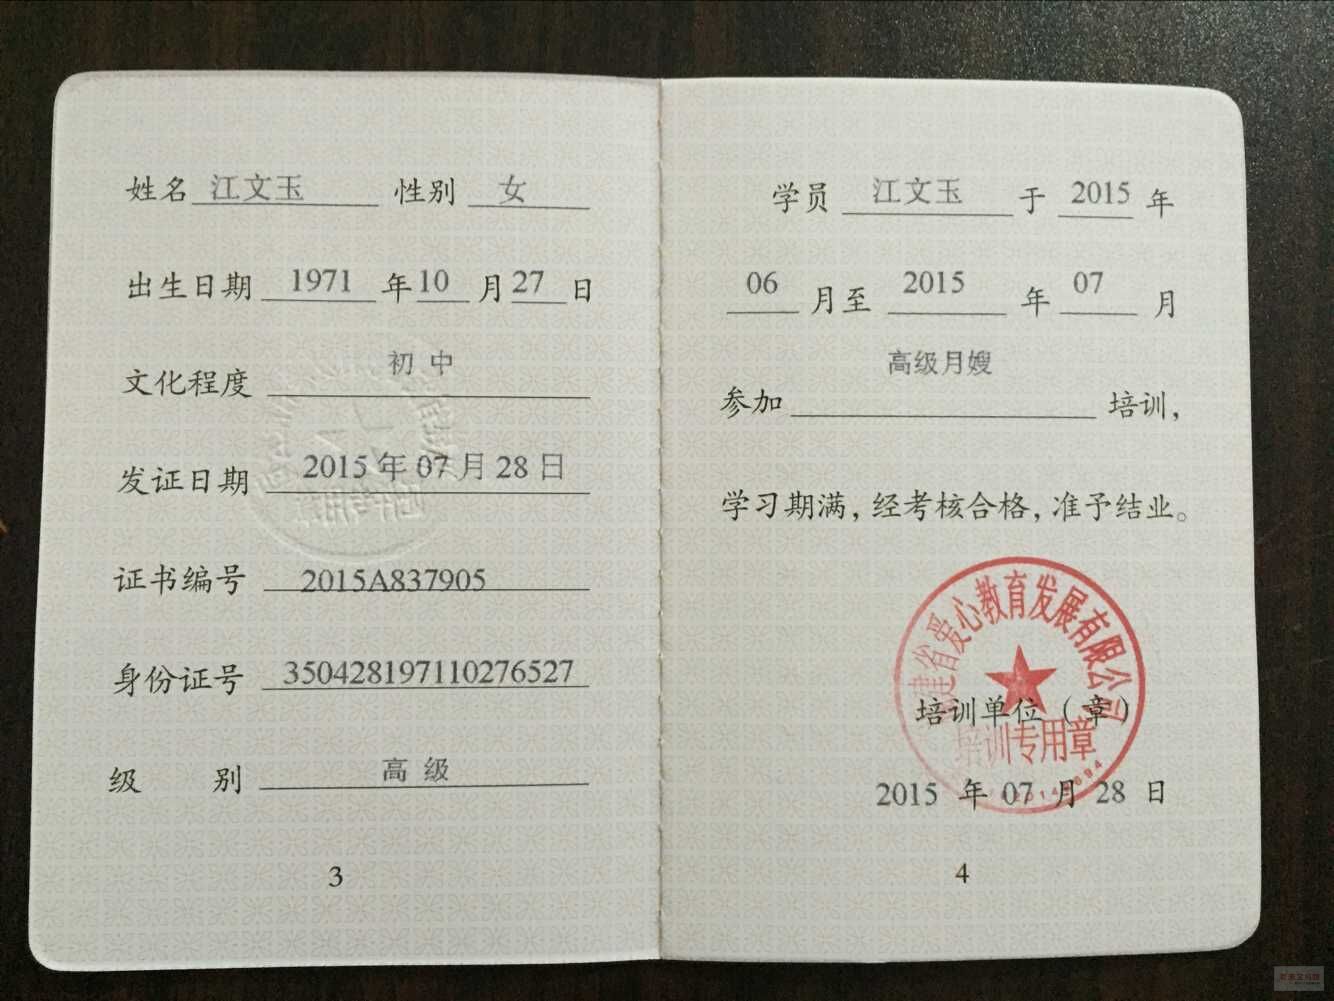 姓名 江文玉 性别 女
出生日期 1971 年 10 月 27 日
文化程度 初中
发证日期 2015年07月28日
证书编号 2015A837905
身份证号 350428197110276527
级 别 高级
3
学员 江文玉 于 2015 年
06 月至 2015 年 07 月
参加 高级月嫂 培训，
学习期满，经考核合格，准予结业。
建省爱心教育发展有限公司
培训单位（章）
培训专用章
2015 年 07 月 28 日
4